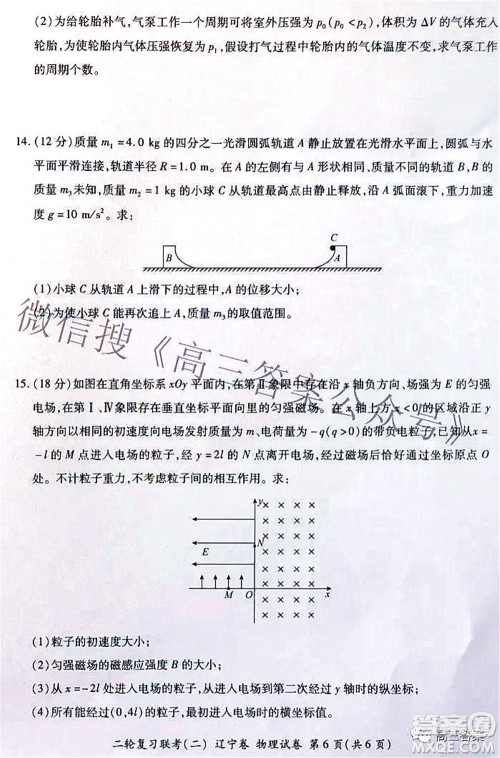 (2)为给轮胎补气,气泵工作一个周期可将室外压强为p₀(p₀<p₂),体积为ΔV的气体充入
轮胎,为使轮胎内气体压强恢复为p₁,假设打气过程中轮胎内的气体温度不变,求气泵工作
的周期个数。
14.(12分)质量m₁=4.0 kg的四分之一光滑圆弧轨道A静止放置在光滑水平面上,圆弧与水
平面平滑连接,轨道半径R=1.0 m。在轨道右侧有与A形状相同、质量不同的轨道B,B的
质量m₃未知,质量m₂=1 kg的小球C从轨道最高点由静止释放,沿A弧面滚下,重力加速
度g=10 m/s²。求:
B
C
A
(1)小球C从轨道A上滑下的过程中,A的位移大小;
(2)为使小球C能再次追上A,质量m₃的取值范围。
15.(18分)如图在直角坐标系xOy平面内,在第Ⅱ象限中存在沿x轴负方向、场强为E的匀强
电场,在第Ⅰ、Ⅳ象限存在垂直坐标平面向里的匀强磁场。在x轴上方x<0的区域沿正y
轴方向以相同的初速度向电场发射质量为m、电荷量为-q(q>0)的带负电粒子,已知从x=
-l的M点进入电场的粒子,经y=2l的N点进入磁场,经过磁场后恰好通过坐标原点O
处。不计粒子重力,不考虑粒子间的相互作用。求:
y
E
N
M
O
x
(1)粒子的初速度大小;
(2)匀强磁场的磁感应强度B的大小;
(3)从x=-2l处进入电场的粒子,从进入电场到第二次经过y轴的时间及对应的纵坐标;
(4)经过(0,4l)的粒子,从进入电场到第二次经过y轴的时间及对应的纵坐标。
二轮复习联考(二) 辽宁卷 物理试卷 第6页(共6页)
微信搜《高三答案公众号》
高三答案